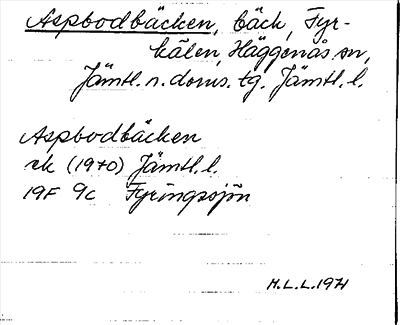 Aspbodbäcken, bäck, Fyr-
kälen, Häggenås sn,
Jämtl. n. doms. tg. Jämtl. l.
Aspbodbäcken
ek (1970) Jämtl. l.
19F 9c Fyringsjön
H.L.L. 1971